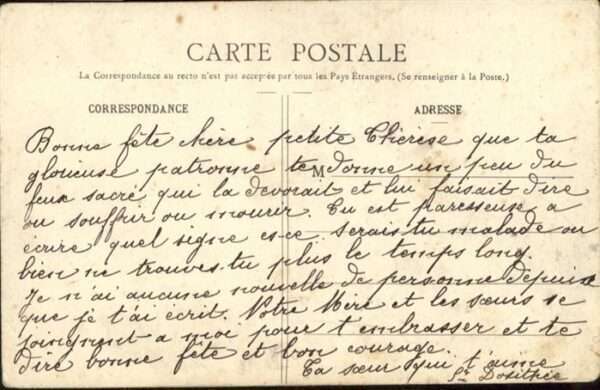 CARTE POSTALE
La Correspondance au recto n'est pas acceptée par tous les Pays Étrangers. (Se renseigner à la Poste.)
CORRESPONDANCE
ADRESSE
M
Bonne fête chère petite Thérèse que ta
glorieuse patronne te donne un peu du
feux sacré qui la devorait et lui faisait dire
ou souffrir ou mourir. Tu est paresseuse a
écrire quel signe es-ce serais tu malade ou
bien ne trouves-tu plus le temps long.
Je n'ai aucune nouvelle de personne depuis
que je t'ai écrit. Votre Mère et les sœurs se
joingnent a moi pour t'embrasser et te
dire bonne fête et bon courage.
Ta sœur qui t'aime
Sr Dosithée